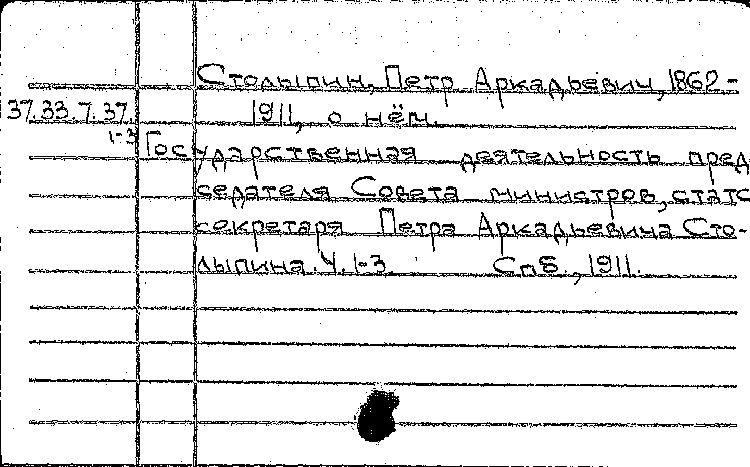 Столыпин, Петр Аркадьевич, 1862-
37.33.7.37. 1911, о нём.
1-3 Государственная деятельность пред
седателя Совета министров, статс
секретаря Петра Аркадьевича Сто-
лыпина. Ч. 1-3. Спб., 1911.